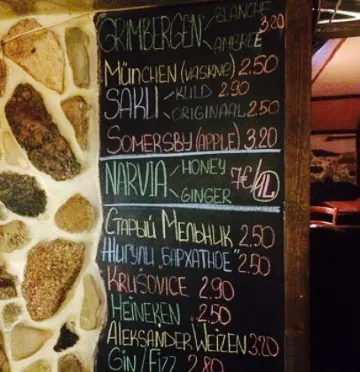 GRIMBERGEN BLANCHE 3.20
AMBREE
MÜNCHEN (VASKNE) 2.50
SAKU KULD 2.90
ORIGINAAL 2.50
SOMERSBY (APPLE) 3.20
NARVIA HONEY 7€/1L
GINGER
СТАРЫЙ МЕЛЬНИК 2.50
ЖИГУЛИ „БАРХАТНОЕ" 2.50
KRUŠOVICE 2.90
HEINEKEN 2.50
ALEKSANDER WEIZEN 3.20
GIN/FIZZ 2.80